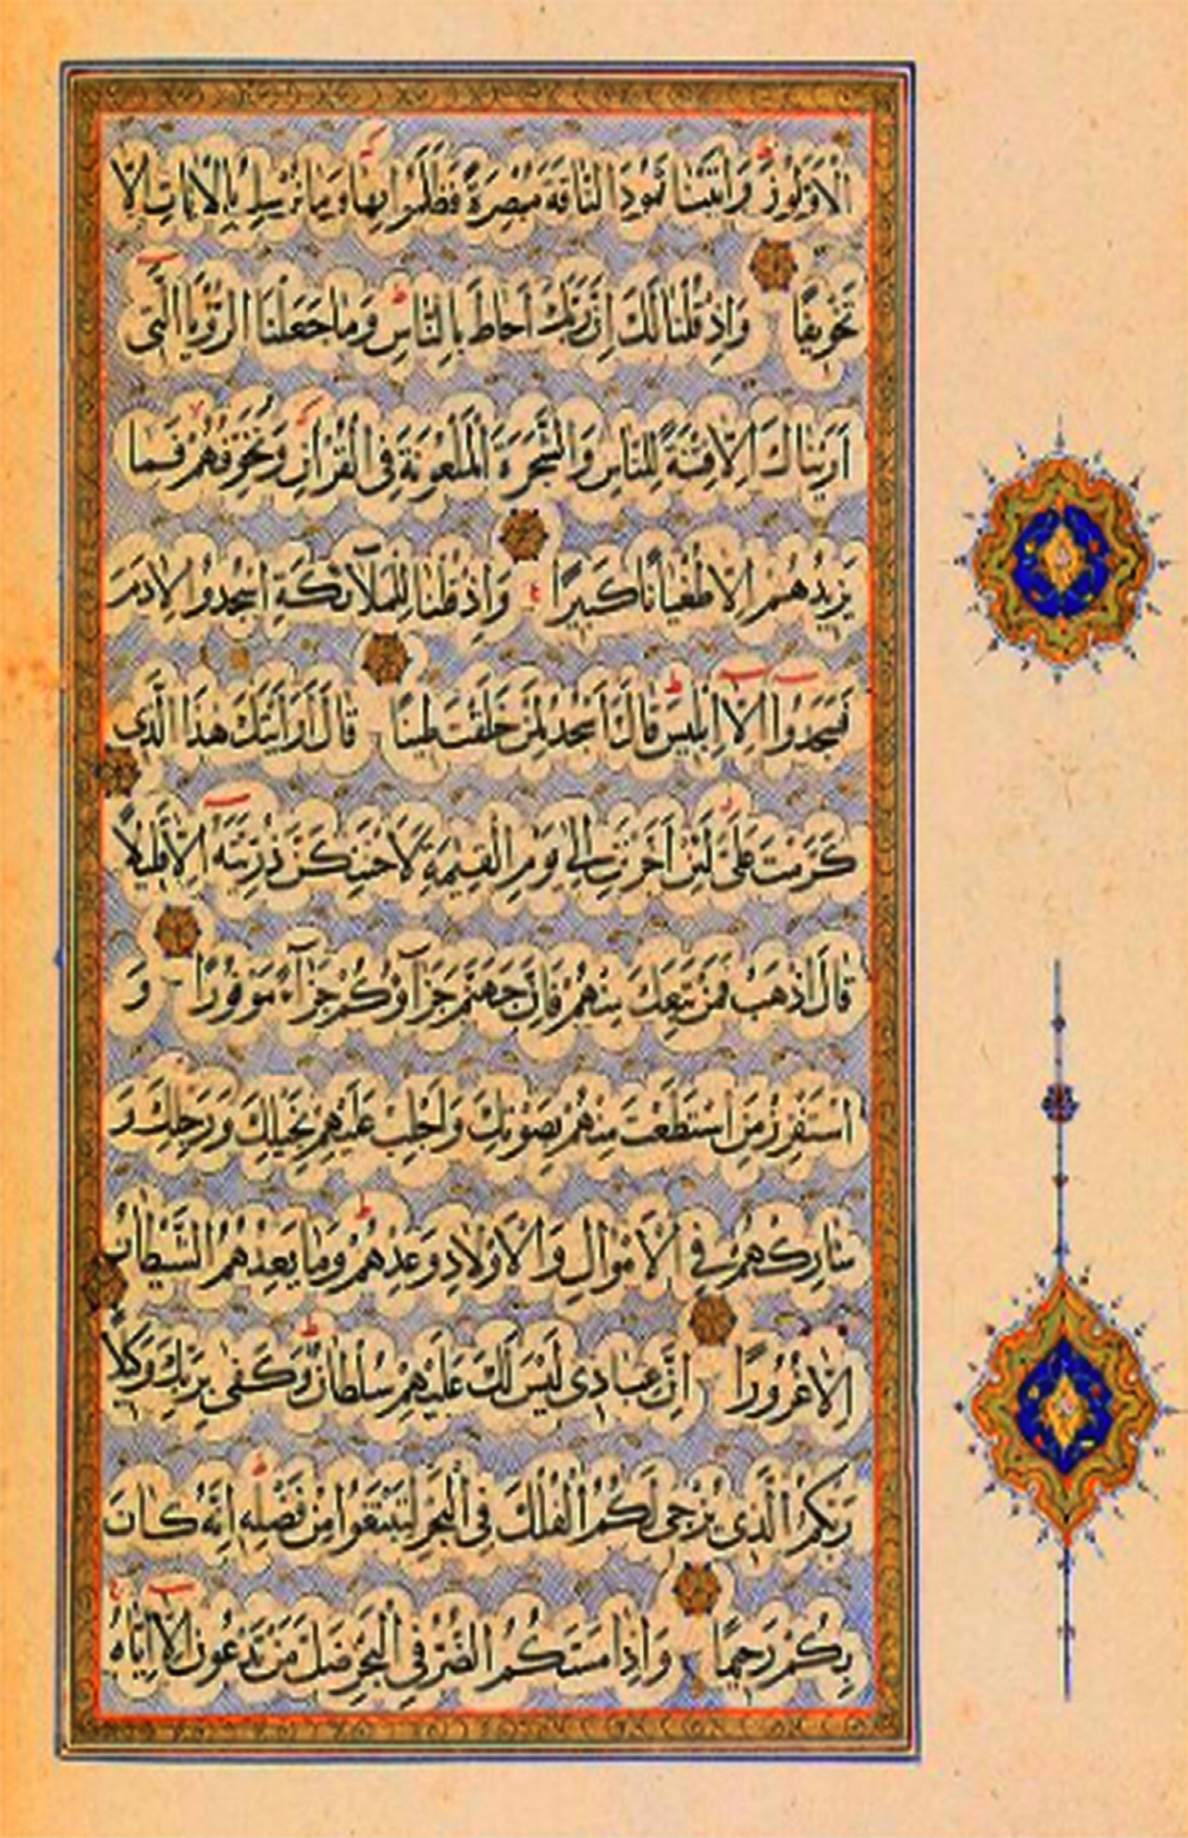 الْاَوَّلُونَ وَاٰتَيْنَا ثَمُودَ النَّاقَةَ مُبْصِرَةً فَظَلَمُوا بِهَا وَمَا نُرْسِلُ بِالْاٰيَاتِ اِلَّا
تَخْوِيفًا وَاِذْ قُلْنَا لَكَ اِنَّ رَبَّكَ اَحَاطَ بِالنَّاسِ وَمَا جَعَلْنَا الرُّؤْيَا الَّتٖى
اَرَيْنَاكَ اِلَّا فِتْنَةً لِلنَّاسِ وَالشَّجَرَةَ الْمَلْعُونَةَ فِى الْقُرْاٰنِ وَنُخَوِّفُهُمْ فَمَا
يَزٖيدُهُمْ اِلَّا طُغْيَانًا كَبٖيرًا وَاِذْ قُلْنَا لِلْمَلٰٓائِكَةِ اسْجُدُوا لِاٰدَمَ
فَسَجَدُوا اِلَّا اِبْلٖيسَ قَالَ ءَاَسْجُدُ لِمَنْ خَلَقْتَ طٖينًا قَالَ اَرَاَيْتَكَ هٰذَا الَّذٖى
كَرَّمْتَ عَلَىَّ لَئِنْ اَخَّرْتَنِ اِلٰى يَوْمِ الْقِيٰمَةِ لَاَحْتَنِكَنَّ ذُرِّيَّتَهُ اِلَّا قَلٖيلًا
قَالَ اذْهَبْ فَمَنْ تَبِعَكَ مِنْهُمْ فَاِنَّ جَهَنَّمَ جَزَآؤُكُمْ جَزَآءً مَوْفُورًا وَ
اسْتَفْزِزْ مَنِ اسْتَطَعْتَ مِنْهُمْ بِصَوْتِكَ وَاَجْلِبْ عَلَيْهِمْ بِخَيْلِكَ وَرَجِلِكَ وَ
شَارِكْهُمْ فِى الْاَمْوَالِ وَالْاَوْلَادِ وَعِدْهُمْ وَمَا يَعِدُهُمُ الشَّيْطَانُ
اِلَّا غُرُورًا اِنَّ عِبَادٖى لَيْسَ لَكَ عَلَيْهِمْ سُلْطَانٌ وَكَفٰى بِرَبِّكَ وَكٖيلًا
رَبُّكُمُ الَّذٖى يُزْجٖى لَكُمُ الْفُلْكَ فِى الْبَحْرِ لِتَبْتَغُوا مِنْ فَضْلِهٖ اِنَّهُ كَانَ
بِكُمْ رَحٖيمًا وَاِذَا مَسَّكُمُ الضُّرُّ فِى الْبَحْرِ ضَلَّ مَنْ تَدْعُونَ اِلَّا اِيَّاهُ